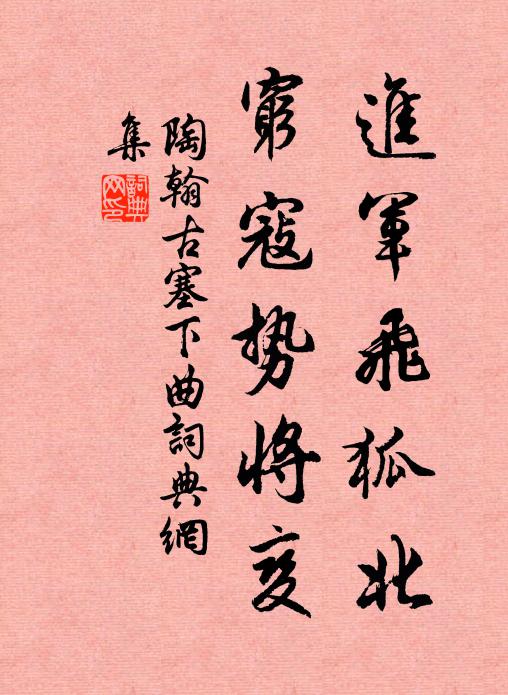 進軍飛狐北
窮寇勢將变
陶翰古塞下曲詞典網
集
詞典
网印